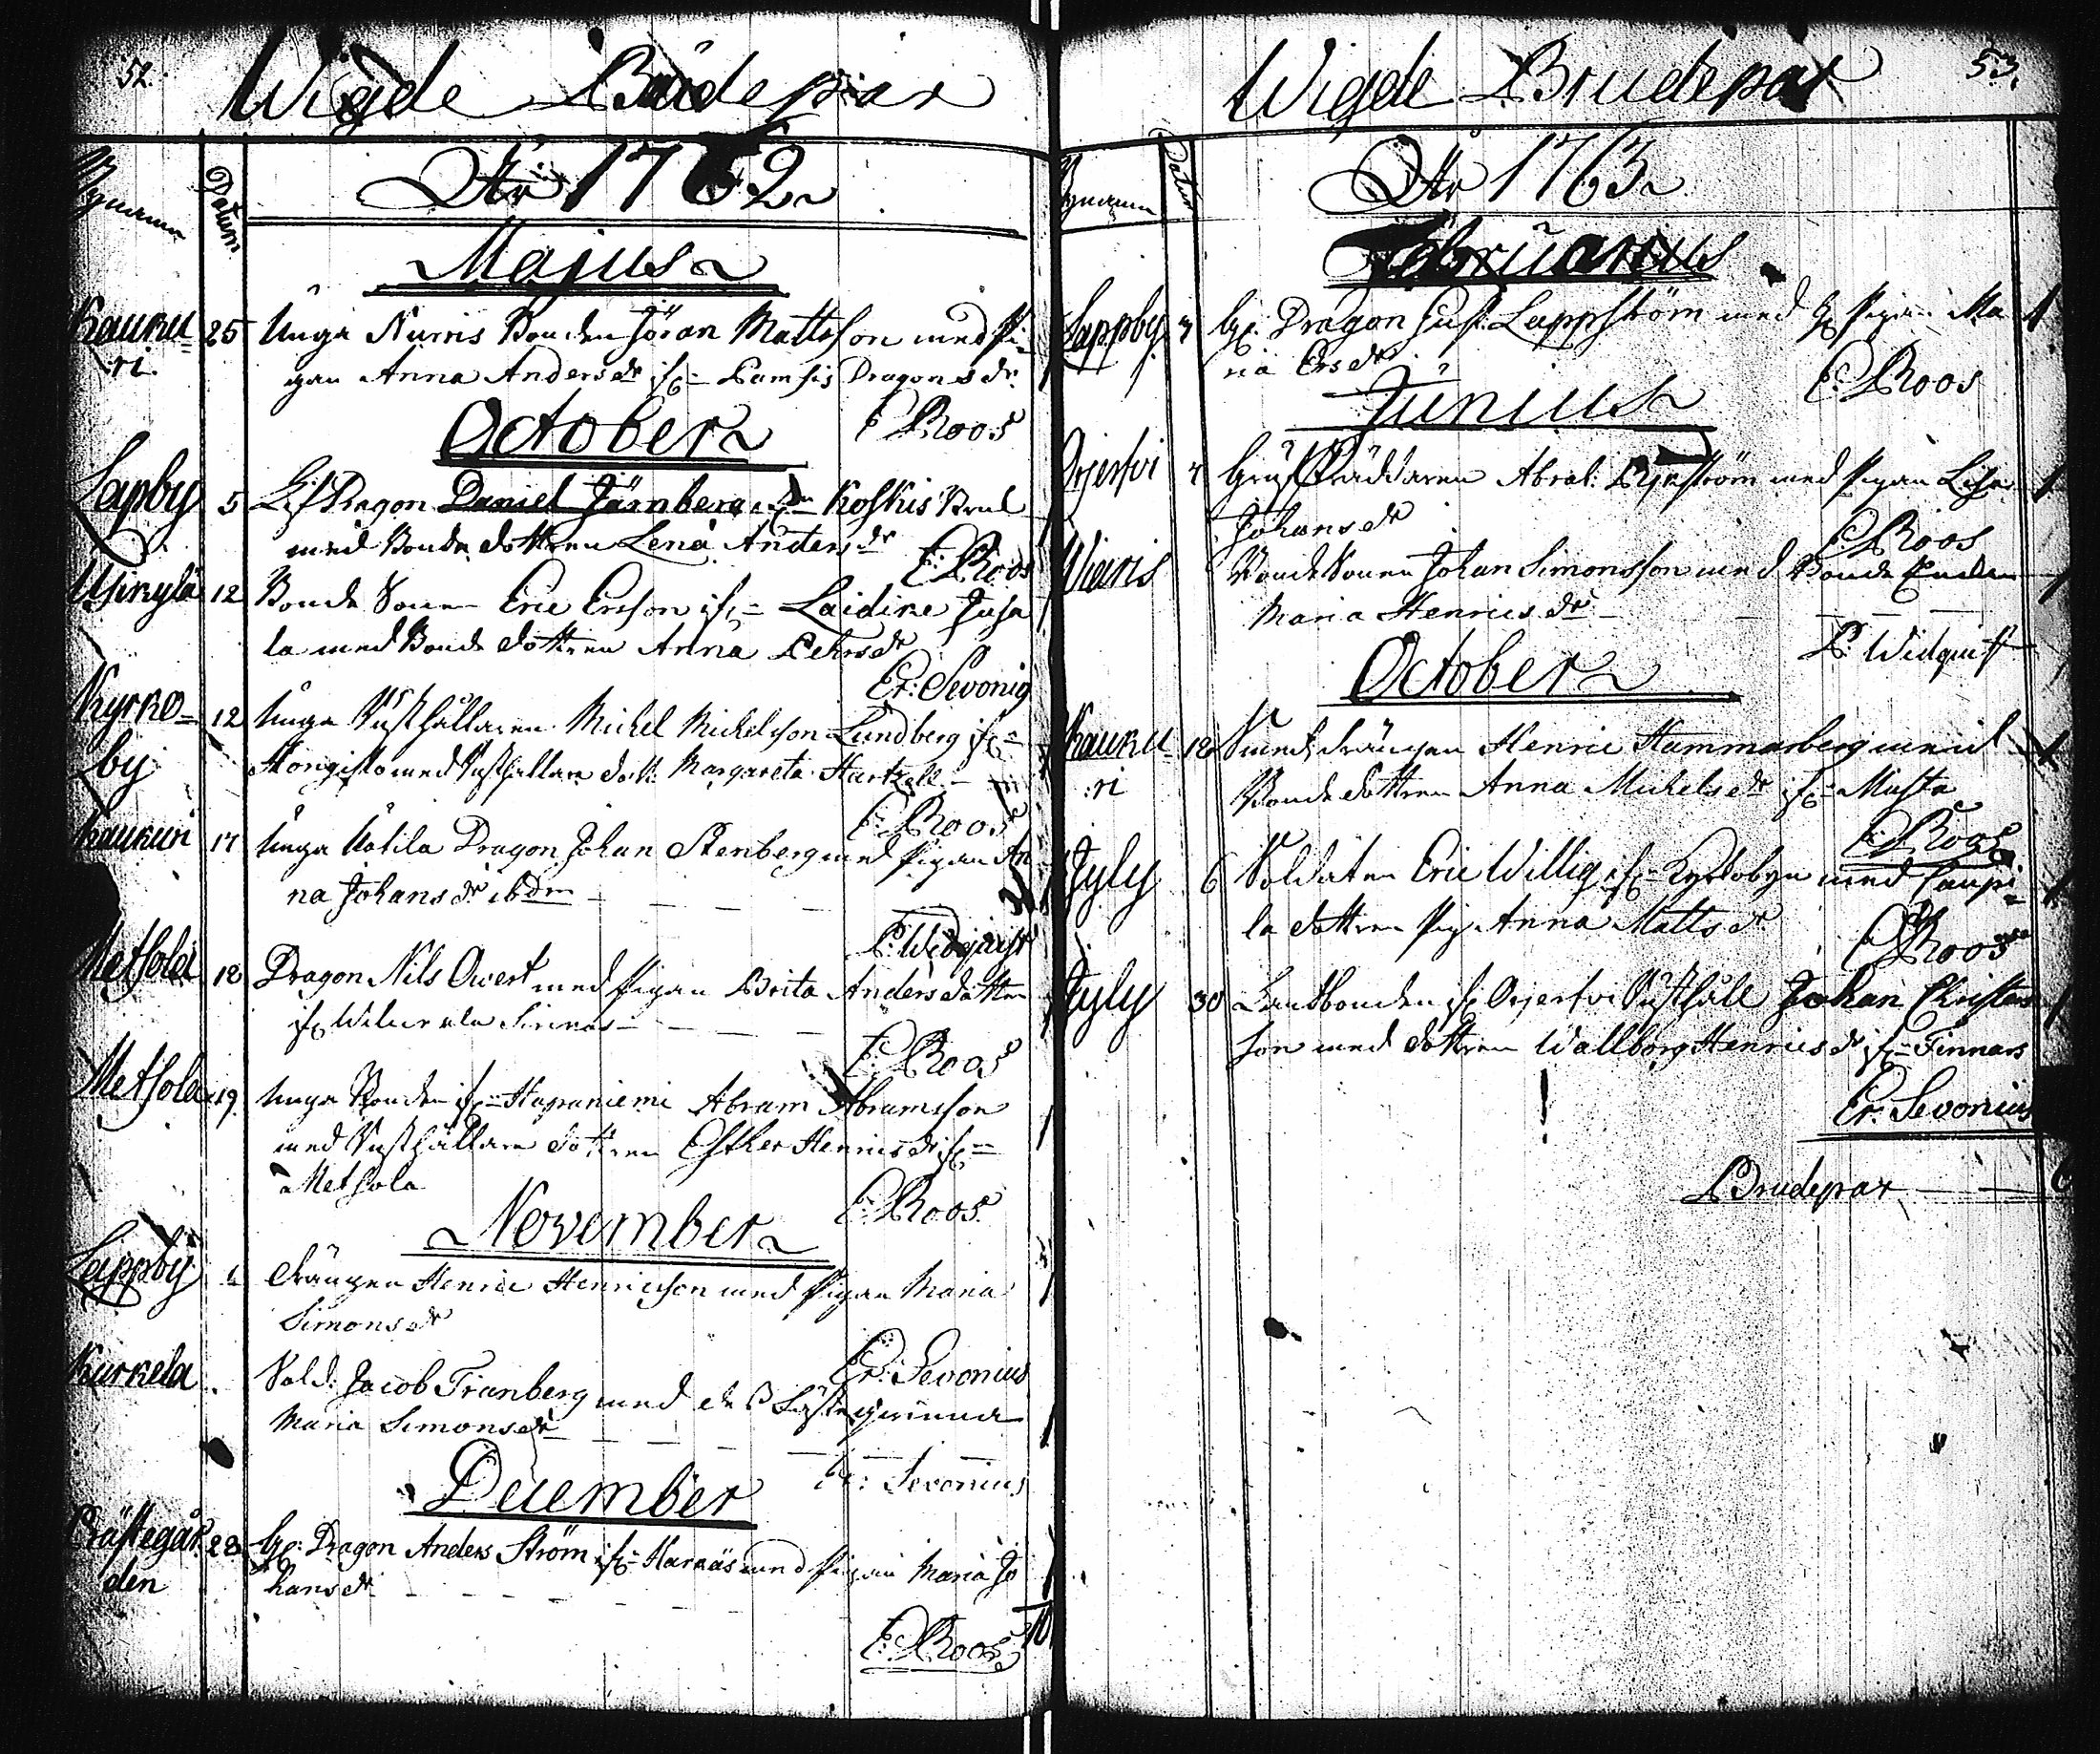 52.
Wigde Brudepar
Bynamn
Datum
År 1762
Majus
Kauku=
ri.
25
Unga Nurris Bonden Jöran Mattsson med Pi-
gan Anna Andersdr ifr. Lamsis Dragons dr.
E: Roos
October
Lapby
5
Lif Dragon Daniel Järnberg Koskis
med Bonde dottren Lena Andersdr
E: Roos
Uskylä
12
Bonde Sonen Eric Ersson ifr. Laidike Jusa
la med Bonde dottren Anna Pehrsdr
Er: Sevonig
Kyrko=
by
12
Unga Rusthållaren Michel Michelsson Lundberg ifr.
Hongisto med Rusthållare dott. Margareta Hartzell
E: Roos
Kaukuri
17
Unga Uotila Dragon Johan Stenberg med Pigan An
na Johansdr ibdm
P: Widquist
Metsola
18
Dragon Nils Qwert med Pigan Brita Anders dotter
ifr
E: Roos
Metsola
19
Unga Bonden ifr. Hapaniemi Abram Abramsson
med Rusthållare dottren Esther Henricsdr ifr.
Metsola
E: Roos
November
Lappby
Drängen Henric Henricsson med Pigan Maria
Simonsdr
Er: Sevonius
Kurkela
Sold: Jacob Tranberg med des Fästeqwinna
Maria Simonsdr
Er: Sevonius
December
Prästegår
den
28
Dragon Anders Ström ifr. Haraäs med Pigan Maria Jo
hansdr
E: Roos
10
53.
Wigde Brudepar
Bynamn
Datum
År 1763
Februarius
Lappby
Dragon Just. Lappström med Pigan Ma
ria Ersdr
E: Roos
Junius
Orjerfvi
Skräddaren Abrah: Byström med Pigan Lisa
Johansdr
E: Roos
Wiaris
Bonde Sonen Johan Simonsson med Bonde Enkan
Maria Henricsdr
P: Widquist
October
Kauku
ri
18
Smeds drängen Henric Hammarberg med
Bonde dottren Anna Michelsdr ifr. Musta
E: Roos
Jyly
6
Soldaten Eric Willig ifr. Kyrkobyn med Caupi-
la dottren Pig. Anna Mattsdr
E: Roos
Jyly
30
Landbonden ifr. Orjerfvi Rusthåll Johan Christers
son med dottren Wallborg Henricsdr ifr. Finnars
Er: Sevonius
Brudepar
6